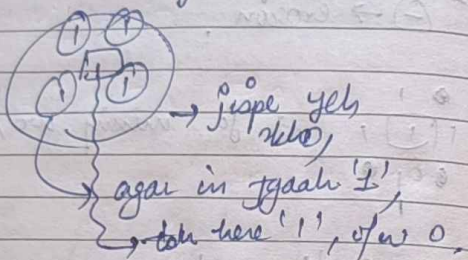 1 1
1 1
→ jispe yeh
rkho,
agar in jgaah '1',
→ toh here '1', o/w 0.